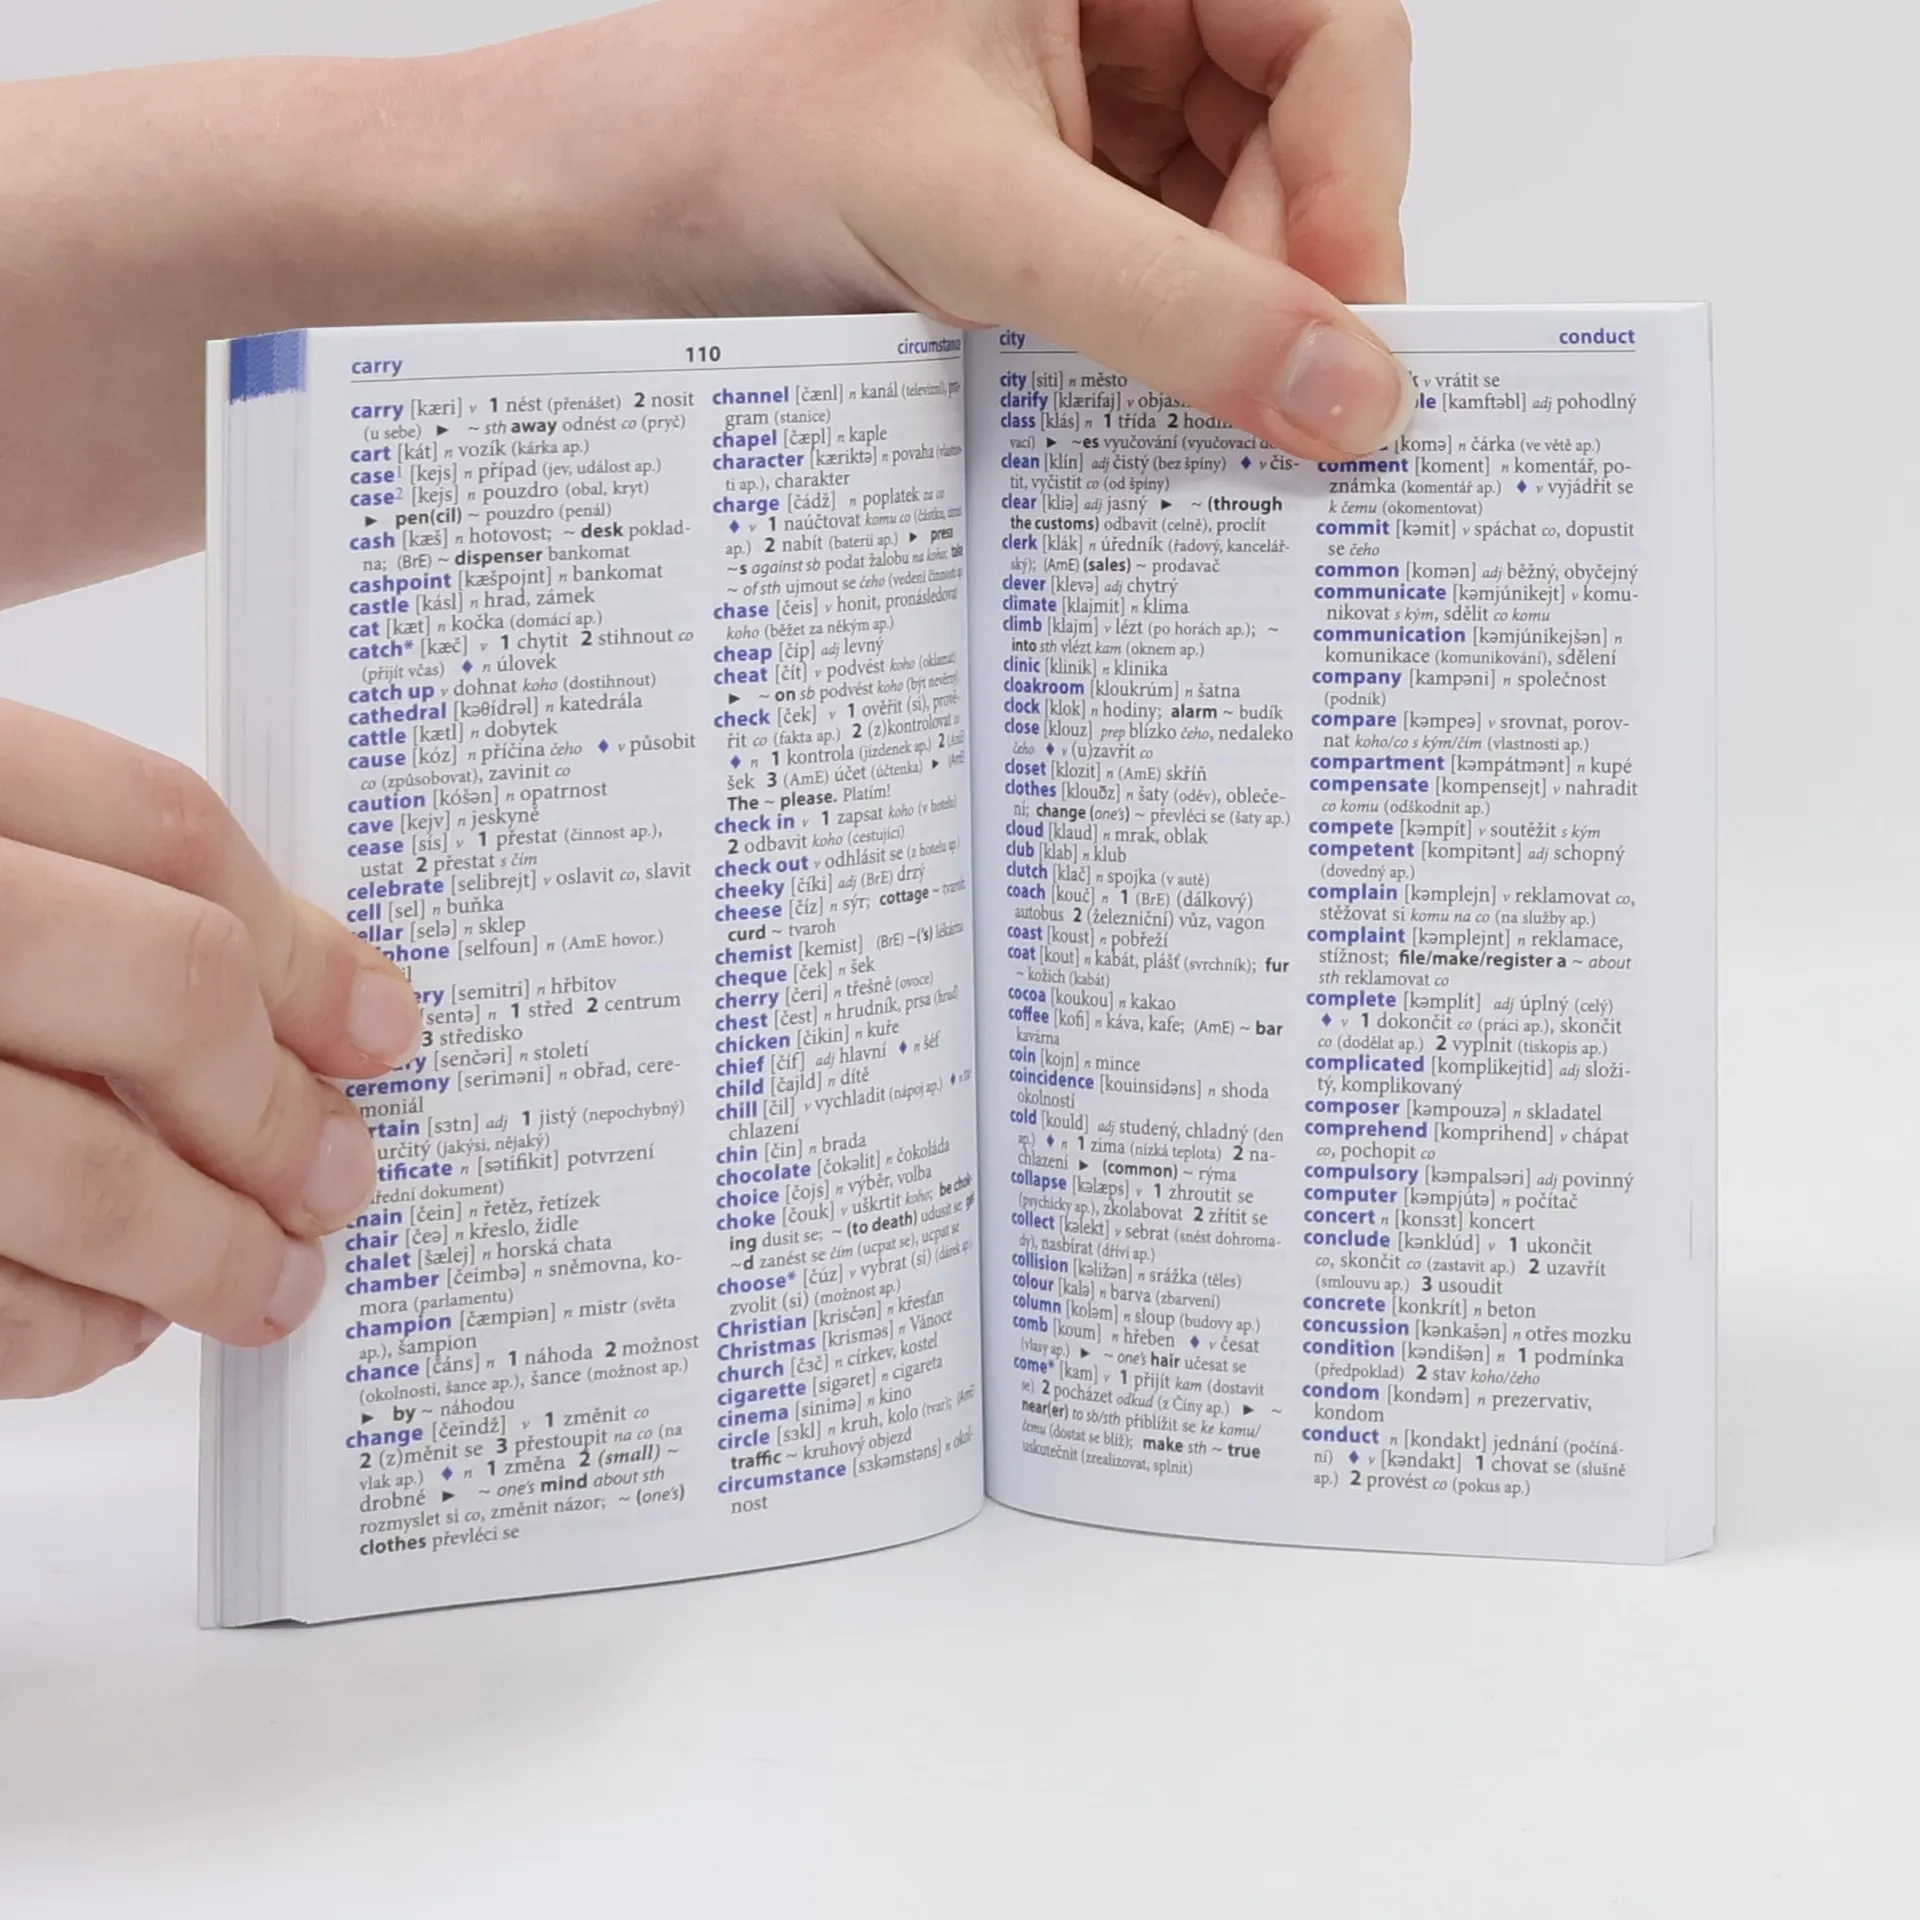 carry
110
carry [kæri] v 1 nést (přenášet) 2 nosit
(u sebe) ► ~ sth away odnést co (pryč)
cart [kát] n vozík (kárka ap.)
case¹ [kejs] n případ (jev, událost ap.)
case² [kejs] n pouzdro (obal, kryt)
► pen(cil) ~ pouzdro (penál)
cash [kæš] n hotovost; ~ desk poklad-
na; (BrE) ~ dispenser bankomat
cashpoint [kæšpojnt] n bankomat
castle [kásl] n hrad, zámek
cat [kæt] n kočka (domácí ap.)
catch* [kæč] v 1 chytit 2 stihnout co
(přijít včas) ♦ n úlovek
catch up v dohnat koho (dostihnout)
cathedral [kəθídrəl] n katedrála
cattle [kætl] n dobytek
cause [kóz] n příčina čeho ♦ v působit
co (způsobovat), zavinit co
caution [kóšən] n opatrnost
cave [kejv] n jeskyně
cease [sís] v 1 přestat (činnost ap.),
ustat 2 přestat s čím
celebrate [selibrejt] v oslavit co, slavit
cell [sel] n buňka
[selə] n sklep
[selfoun] n (AmE hovor.)
[semitri] n hřbitov
[sentə] n 1 střed 2 centrum
3 středisko
[senčəri] n století
ceremony [seriməni] n obřad, cere-
moniál
[sɜtn] adj 1 jistý (nepochybný)
určitý (jakýsi, nějaký)
n [sətifikit] potvrzení
dokument)
[čein] n řetěz, řetízek
chair [čeə] n křeslo, židle
chalet [šælej] n horská chata
chamber [čeimbə] n sněmovna, ko-
mora (parlamentu)
champion [čæmpiən] n mistr (světa
ap.), šampion
chance [čáns] n 1 náhoda 2 možnost
(okolnosti, šance ap.), šance (možnost ap.)
► by ~ náhodou
change [čeindž] v 1 změnit co
2 (z)měnit se 3 přestoupit na co (na
vlak ap.) ♦ n 1 změna 2 (small) ~
drobné ► ~ one's mind about sth
rozmyslet si co, změnit názor; ~ (one's)
clothes převléci se
channel [čænl] n kanál (televizní),
gram (stanice)
chapel [čæpl] n kaple
character [kæriktə] n povaha
ti ap.), charakter
charge [čádž] n poplatek za co
♦ v 1 naúčtovat komu co (částku,
ap.) 2 nabít (baterii ap.) ► press
~s against sb podat žalobu na koho; take
~ of sth ujmout se čeho (vedení činnosti
chase [čeis] v honit, pronásledovat
koho (běžet za někým ap.)
cheap [číp] adj levný
cheat [čít] v podvést koho (oklamat)
► ~ on sb podvést koho (být nevěrný)
check [ček] v 1 ověřit (si), prově-
řit co (fakta ap.) 2 (z)kontrolovat
♦ n 1 kontrola (jízdenek ap.) 2
šek 3 (AmE) účet (účtenka) ►
The ~ please. Platím!
check in v 1 zapsat koho (v hotelu)
2 odbavit koho (cestující)
check out v odhlásit se (z hotelu ap.)
cheeky [číki] adj (BrE) drzý
cheese [číz] n sýr; cottage ~ tvaroh
curd ~ tvaroh
chemist [kemist] (BrE) ~('s) lékárna
cheque [ček] n šek
cherry [čeri] n třešně (ovoce)
chest [čest] n hrudník, prsa (hruď)
chicken [čikin] n kuře
chief [číf] adj hlavní ♦ n šéf
child [čajld] n dítě
chill [čil] v vychladit (nápoj ap.) ♦ n
chlazení
chin [čin] n brada
chocolate [čokəlit] n čokoláda
choice [čojs] n výběr, volba
choke [čouk] v uškrtit koho; be chok-
ing dusit se; ~ (to death) udusit se;
~d zanést se čím (ucpat se), ucpat se
choose* [čúz] v vybrat (si) (dárek ap.)
zvolit (si) (možnost ap.)
Christian [krisčən] n křesťan
Christmas [krisməs] n Vánoce
church [čɜč] n církev, kostel
cigarette [sigəret] n cigareta
cinema [sinimə] n kino
circle [sɜkl] n kruh, kolo (tvar);
traffic ~ kruhový objezd
circumstance [sɜkəmstəns] n okol-
nost
city
conduct
city [siti] n město
clarify [klærifaj] v
class [klás] n 1 třída 2
vací) ► ~es vyučování (vyučovací
clean [klín] adj čistý (bez špíny) ♦ v čis-
tit, vyčistit co (od špíny)
clear [kliə] adj jasný ► ~ (through
the customs) odbavit (celně), proclít
clerk [klák] n úředník (řadový, kancelář-
ský); (AmE) (sales) ~ prodavač
clever [klevə] adj chytrý
climate [klajmit] n klima
climb [klajm] v lézt (po horách ap.); ~
into sth vlézt kam (oknem ap.)
clinic [klinik] n klinika
cloakroom [kloukrúm] n šatna
clock [klok] n hodiny; alarm ~ budík
close [klouz] prep blízko čeho, nedaleko
čeho ♦ v (u)zavřít co
closet [klozit] n (AmE) skříň
clothes [klouðz] n šaty (oděv), obleče-
ní; change (one's) ~ převléci se (šaty ap.)
cloud [klaud] n mrak, oblak
club [klab] n klub
clutch [klač] n spojka (v autě)
coach [kouč] n 1 (BrE) (dálkový)
autobus 2 (železniční) vůz, vagon
coast [koust] n pobřeží
coat [kout] n kabát, plášť (svrchník); fur
~ kožich (kabát)
cocoa [koukou] n kakao
coffee [kofi] n káva, kafe; (AmE) ~ bar
kavárna
coin [kojn] n mince
coincidence [kouinsidəns] n shoda
okolností
cold [kould] adj studený, chladný (den
ap.) ♦ n 1 zima (nízká teplota) 2 na-
chlazení ► (common) ~ rýma
collapse [kəlæps] v 1 zhroutit se
(psychicky ap.), zkolabovat 2 zřítit se
collect [kəlekt] v sebrat (snést dohroma-
dy), nasbírat (dříví ap.)
collision [kəližən] n srážka (těles)
colour [kalə] n barva (zbarvení)
column [koləm] n sloup (budovy ap.)
comb [koum] n hřeben ♦ v česat
(vlasy ap.) ► ~ one's hair učesat se
come* [kam] v 1 přijít kam (dostavit
se) 2 pocházet odkud (z Číny ap.) ► ~
near(er) to sb/sth přiblížit se ke komu/
čemu (dostat se blíž); make sth ~ true
uskutečnit (zrealizovat, splnit)
v vrátit se
[kamftəbl] adj pohodlný
[komə] n čárka (ve větě ap.)
comment [koment] n komentář, po-
známka (komentář ap.) ♦ v vyjádřit se
k čemu (okomentovat)
commit [kəmit] v spáchat co, dopustit
se čeho
common [komən] adj běžný, obyčejný
communicate [kəmjúnikejt] v komu-
nikovat s kým, sdělit co komu
communication [kəmjúnikejšən] n
komunikace (komunikování), sdělení
company [kampəni] n společnost
(podnik)
compare [kəmpeə] v srovnat, porov-
nat koho/co s kým/čím (vlastnosti ap.)
compartment [kəmpátmənt] n kupé
compensate [kompensejt] v nahradit
co komu (odškodnit ap.)
compete [kəmpít] v soutěžit s kým
competent [kompitənt] adj schopný
(dovedný ap.)
complain [kəmplejn] v reklamovat co,
stěžovat si komu na co (na služby ap.)
complaint [kəmplejnt] n reklamace,
stížnost; file/make/register a ~ about
sth reklamovat co
complete [kəmplít] adj úplný (celý)
♦ v 1 dokončit co (práci ap.), skončit
co (dodělat ap.) 2 vyplnit (tiskopis ap.)
complicated [komplikejtid] adj složi-
tý, komplikovaný
composer [kəmpouzə] n skladatel
comprehend [komprihend] v chápat
co, pochopit co
compulsory [kəmpalsəri] adj povinný
computer [kəmpjútə] n počítač
concert n [konsɜt] koncert
conclude [kənklúd] v 1 ukončit
co, skončit co (zastavit ap.) 2 uzavřít
(smlouvu ap.) 3 usoudit
concrete [konkrít] n beton
concussion [kənkašən] n otřes mozku
condition [kəndišən] n 1 podmínka
(předpoklad) 2 stav koho/čeho
condom [kondəm] n prezervativ,
kondom
conduct n [kondakt] jednání (počíná-
ní) ♦ v [kəndakt] 1 chovat se (slušně
ap.) 2 provést co (pokus ap.)